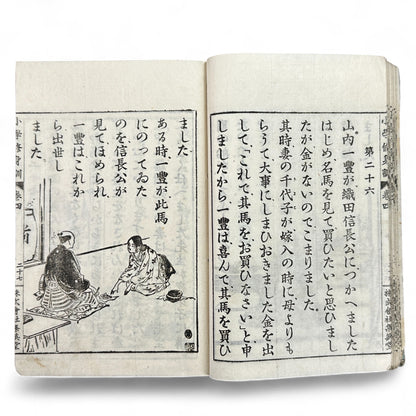 第二十六
山内一豊が織田信長公につかへました
はじめ名馬を見て買ひたいと思ひまし
たが金がないのでこまりました
其時妻の千代子が嫁入の時に母よりも
らうて大事にしまひおきました金を出
して「これで其馬をお買ひなさい」と申
しましたから一豊は喜んで其馬を買ひ
ました
ある時一豊が此馬
にのつてゐた
のを信長公が
見てほめられ
一豊はこれか
ら出世し
ました
小學修身訓 卷四
二十七